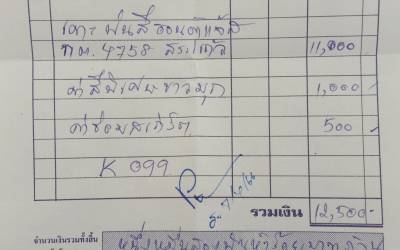 เคาะ พ่นสี ฮอนด้าแจ๊ส
กต. 4758 สระแก้ว 11,000
ค่าสีพิเศษขาวมุก 1,000
ค่าซ่อมสเกิร์ต 500
K 099
7/10/66
รวมเงิน 12,500-
จำนวนเงินรวมทั้งสิ้น หนึ่งหมื่นสองพันห้าร้อยบาทถ้วน